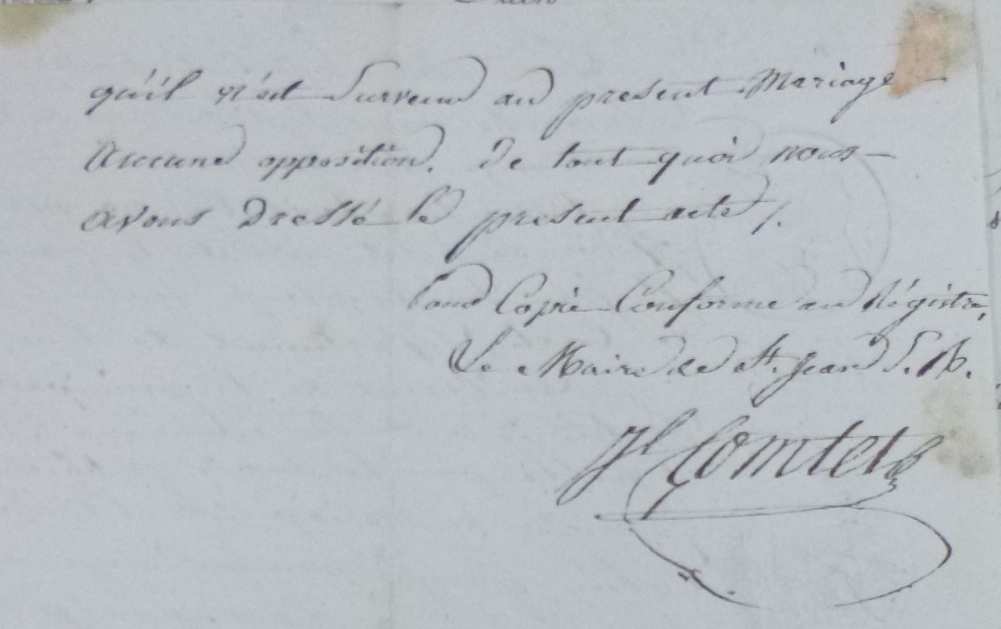 qu'il n'est Survenu au present Mariage
Aucune opposition. De tout quoi nous
avons Dressé le present acte /.
Pour Copie Conforme au Régistre,
Le Maire de St. Jean
Comtet